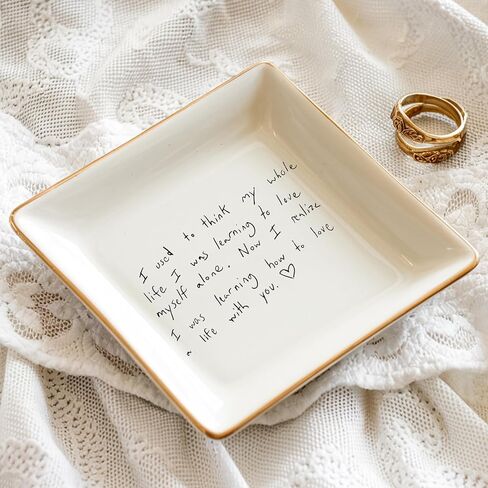 I used to think my whole
life I was learning to love
myself alone. Now I realize
I was learning how to love
a life with you. ♡